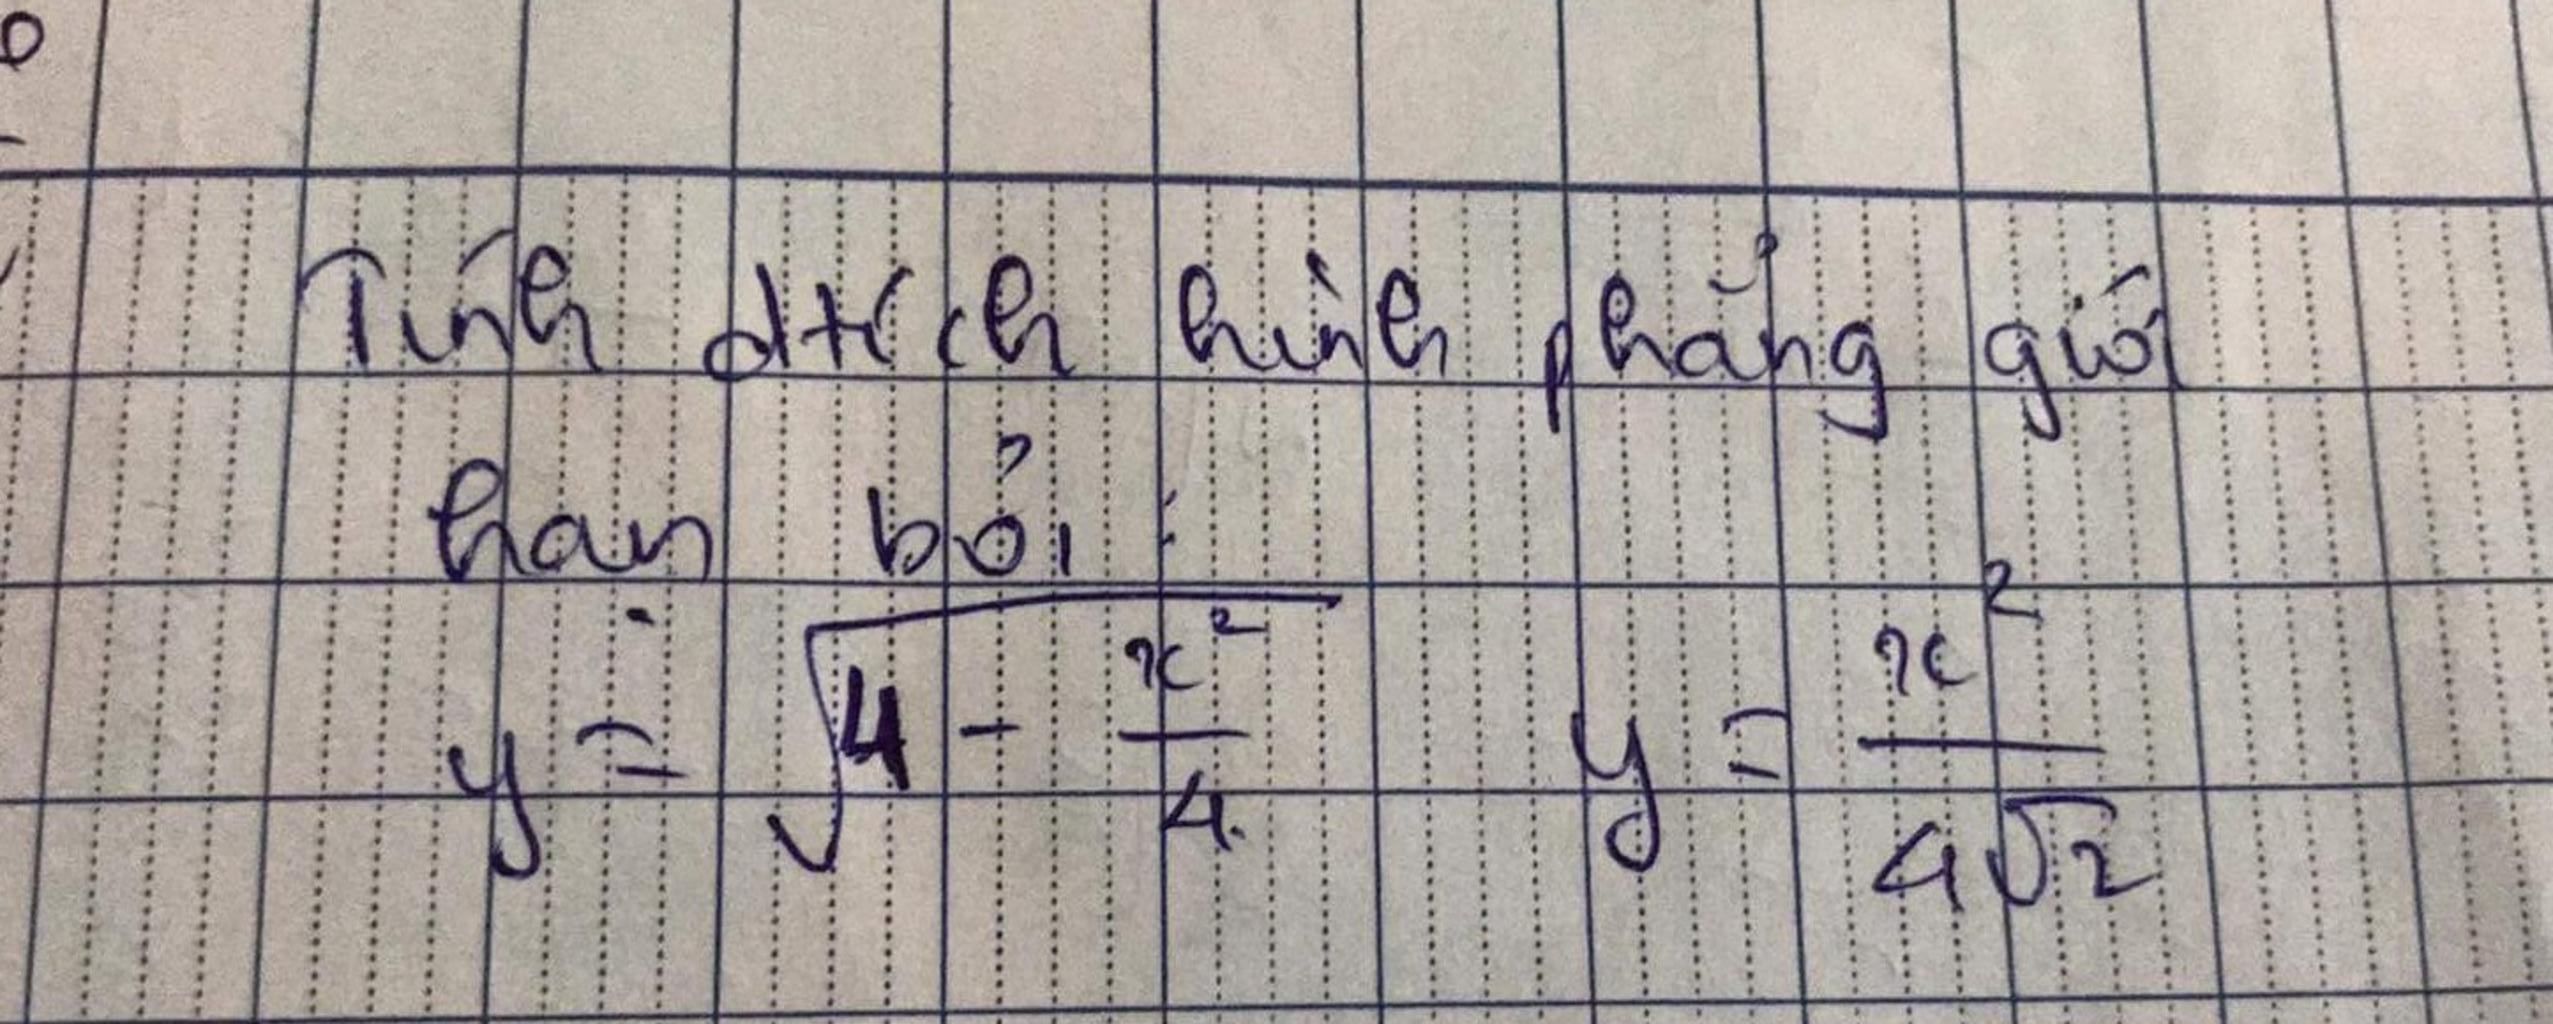 Tính dtích hình phẳng giới
hạn bởi :
y = √(4 - x²/4) y = x²/(4√2)